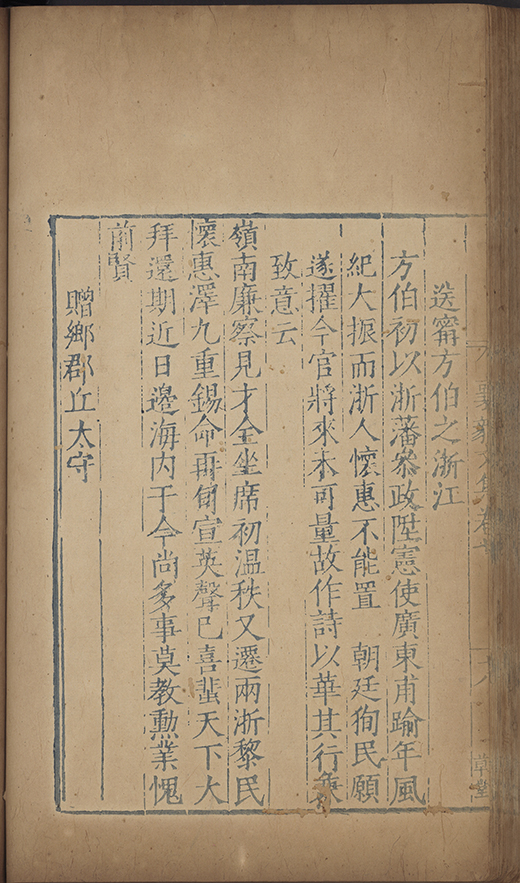 送甯方伯之浙江
方伯初以浙藩叅政陞憲使廣東甫踰年風
紀大振而浙人懷惠不能置　朝廷狥民願
遂擢今官將來未可量故作詩以華其行兼
致意云
嶺南廉察見才全坐席初温秩又遷兩浙黎民
懷惠澤九重錫命再旬宣英聲已喜蜚天下大
拜還期近日邊海内于今尚多事莫教勲業愧
前賢
贈鄉郡丘太守
草堂